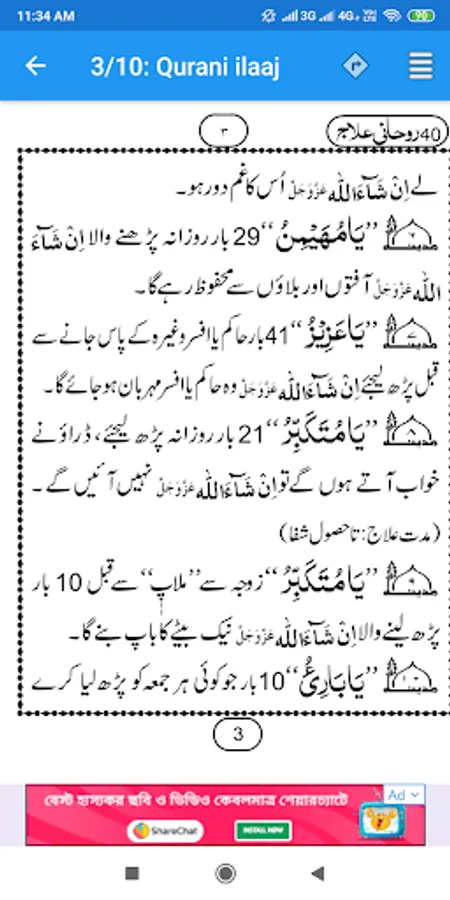 11:34 AM
3G 4G+ VoLTE 20
3/10: Qurani ilaaj
40 روحانی علاج
۳
لے اِنْ شَآءَ اللّٰه عَزَّوَجَلَّ اُس کا غم دور ہو۔
"یَامُهَیْمِنُ" 29 بار روزانہ پڑھنے والا اِنْ شَآءَ
اللّٰه عَزَّوَجَلَّ آفتوں اور بلاؤں سے محفوظ رہے گا۔
"یَاعَزِیْزُ" 41 بار حاکم یا افسر وغیرہ کے پاس جانے سے
قبل پڑھ لیجئے اِنْ شَآءَ اللّٰه عَزَّوَجَلَّ وہ حاکم یا افسر مہربان ہو جائے گا۔
"یَامُتَکَبِّرُ" 21 بار روزانہ پڑھ لیجئے، ڈراؤنے
خواب آتے ہوں گے تو اِنْ شَآءَ اللّٰه عَزَّوَجَلَّ نہیں آئیں گے۔
(مدت علاج: تا حصول شفا)
"یَامُتَکَبِّرُ" زوجہ سے "ملاپ" سے قبل 10 بار
پڑھ لینے والا اِنْ شَآءَ اللّٰه عَزَّوَجَلَّ نیک بیٹے کا باپ بنے گا۔
"یَابَارِیُٔ" 10 بار جو کوئی ہر جمعہ کو پڑھ لیا کرے
3
বেস্ট হাস্যকর ছবি ও ভিডিও কেবলমাত্র শেয়ারচ্যাটে
Ad
ShareChat
INSTALL NOW